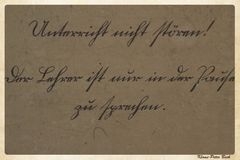 Unterricht nicht stören!
Der Lehrer ist nur in der Pause
zu sprechen.
Klaus-Peter Bark